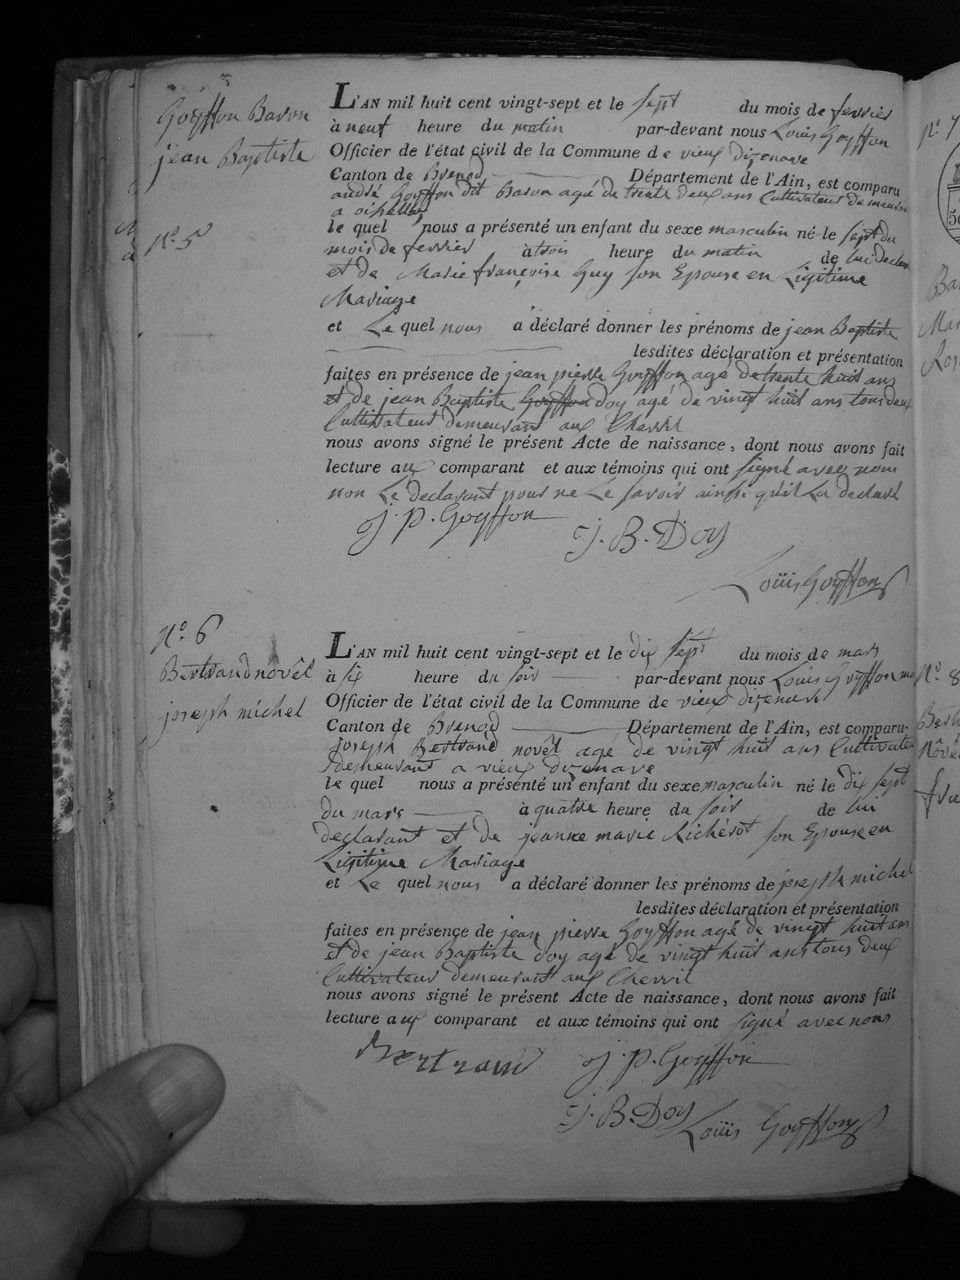 Goyffon Baron
jean Baptiste
N.° 5
L'AN mil huit cent vingt-sept et le sept du mois de fevrier
à neuf heure du matin par-devant nous Louis Goyffon
Officier de l'état civil de la Commune de vieux dizenave
Canton de Brenod Département de l'Ain, est comparu
andré Goyffon dit Baron agé de trente deux ans Cultivateur demeurant
a
le quel nous a présenté un enfant du sexe masculin né le sept du
mois de fevrier à trois heure du matin de lui declar
et de Marie françoise Guy son Epouse en Ligitime
Mariage
et Le quel nous a déclaré donner les prénoms de jean Baptiste
lesdites déclaration et présentation
faites en présence de jean pierre Goyffon agé de trente huit ans
et de jean Baptiste Goyffon doy agé de vingt huit ans tous deux
Cultivateur demeurant aux Chevril
nous avons signé le présent Acte de naissance, dont nous avons fait
lecture aux comparant et aux témoins qui ont signé avec nous
non Le declarant pour ne Le savoir ainsi qu'il La declaré
J. P. Goyffon
J. B. Doy
Louis Goyffon
N.° 6
Bertrand novêl
joseph michel
L'AN mil huit cent vingt-sept et le dix sept du mois de mars
à six heure du soir par-devant nous Louis Goyffon
Officier de l'état civil de la Commune de vieux dizenave
Canton de Brenod Département de l'Ain, est comparu
Joseph Bertrand novêl agé de vingt huit ans Cultivateu
demeurant a vieux dizenave
le quel nous a présenté un enfant du sexe masculin né le dix sept
du mars à quatre heure du soir de lui
declarant et de jeanne marie Richérot son Epouse en
Ligitime Mariage
et Le quel nous a déclaré donner les prénoms de joseph michel
lesdites déclaration et présentation
faites en présence de jean pierre Goyffon agé de vingt huit ans
et de jean Baptiste doy agé de vingt huit ans tous deux
Cultivateur demeurant aux Chevril
nous avons signé le présent Acte de naissance, dont nous avons fait
lecture aux comparant et aux témoins qui ont signé avec nous
Bertrand
J. P. Goyffon
J. B. Doy
Louis Goyffon
N.° 7
N.° 8